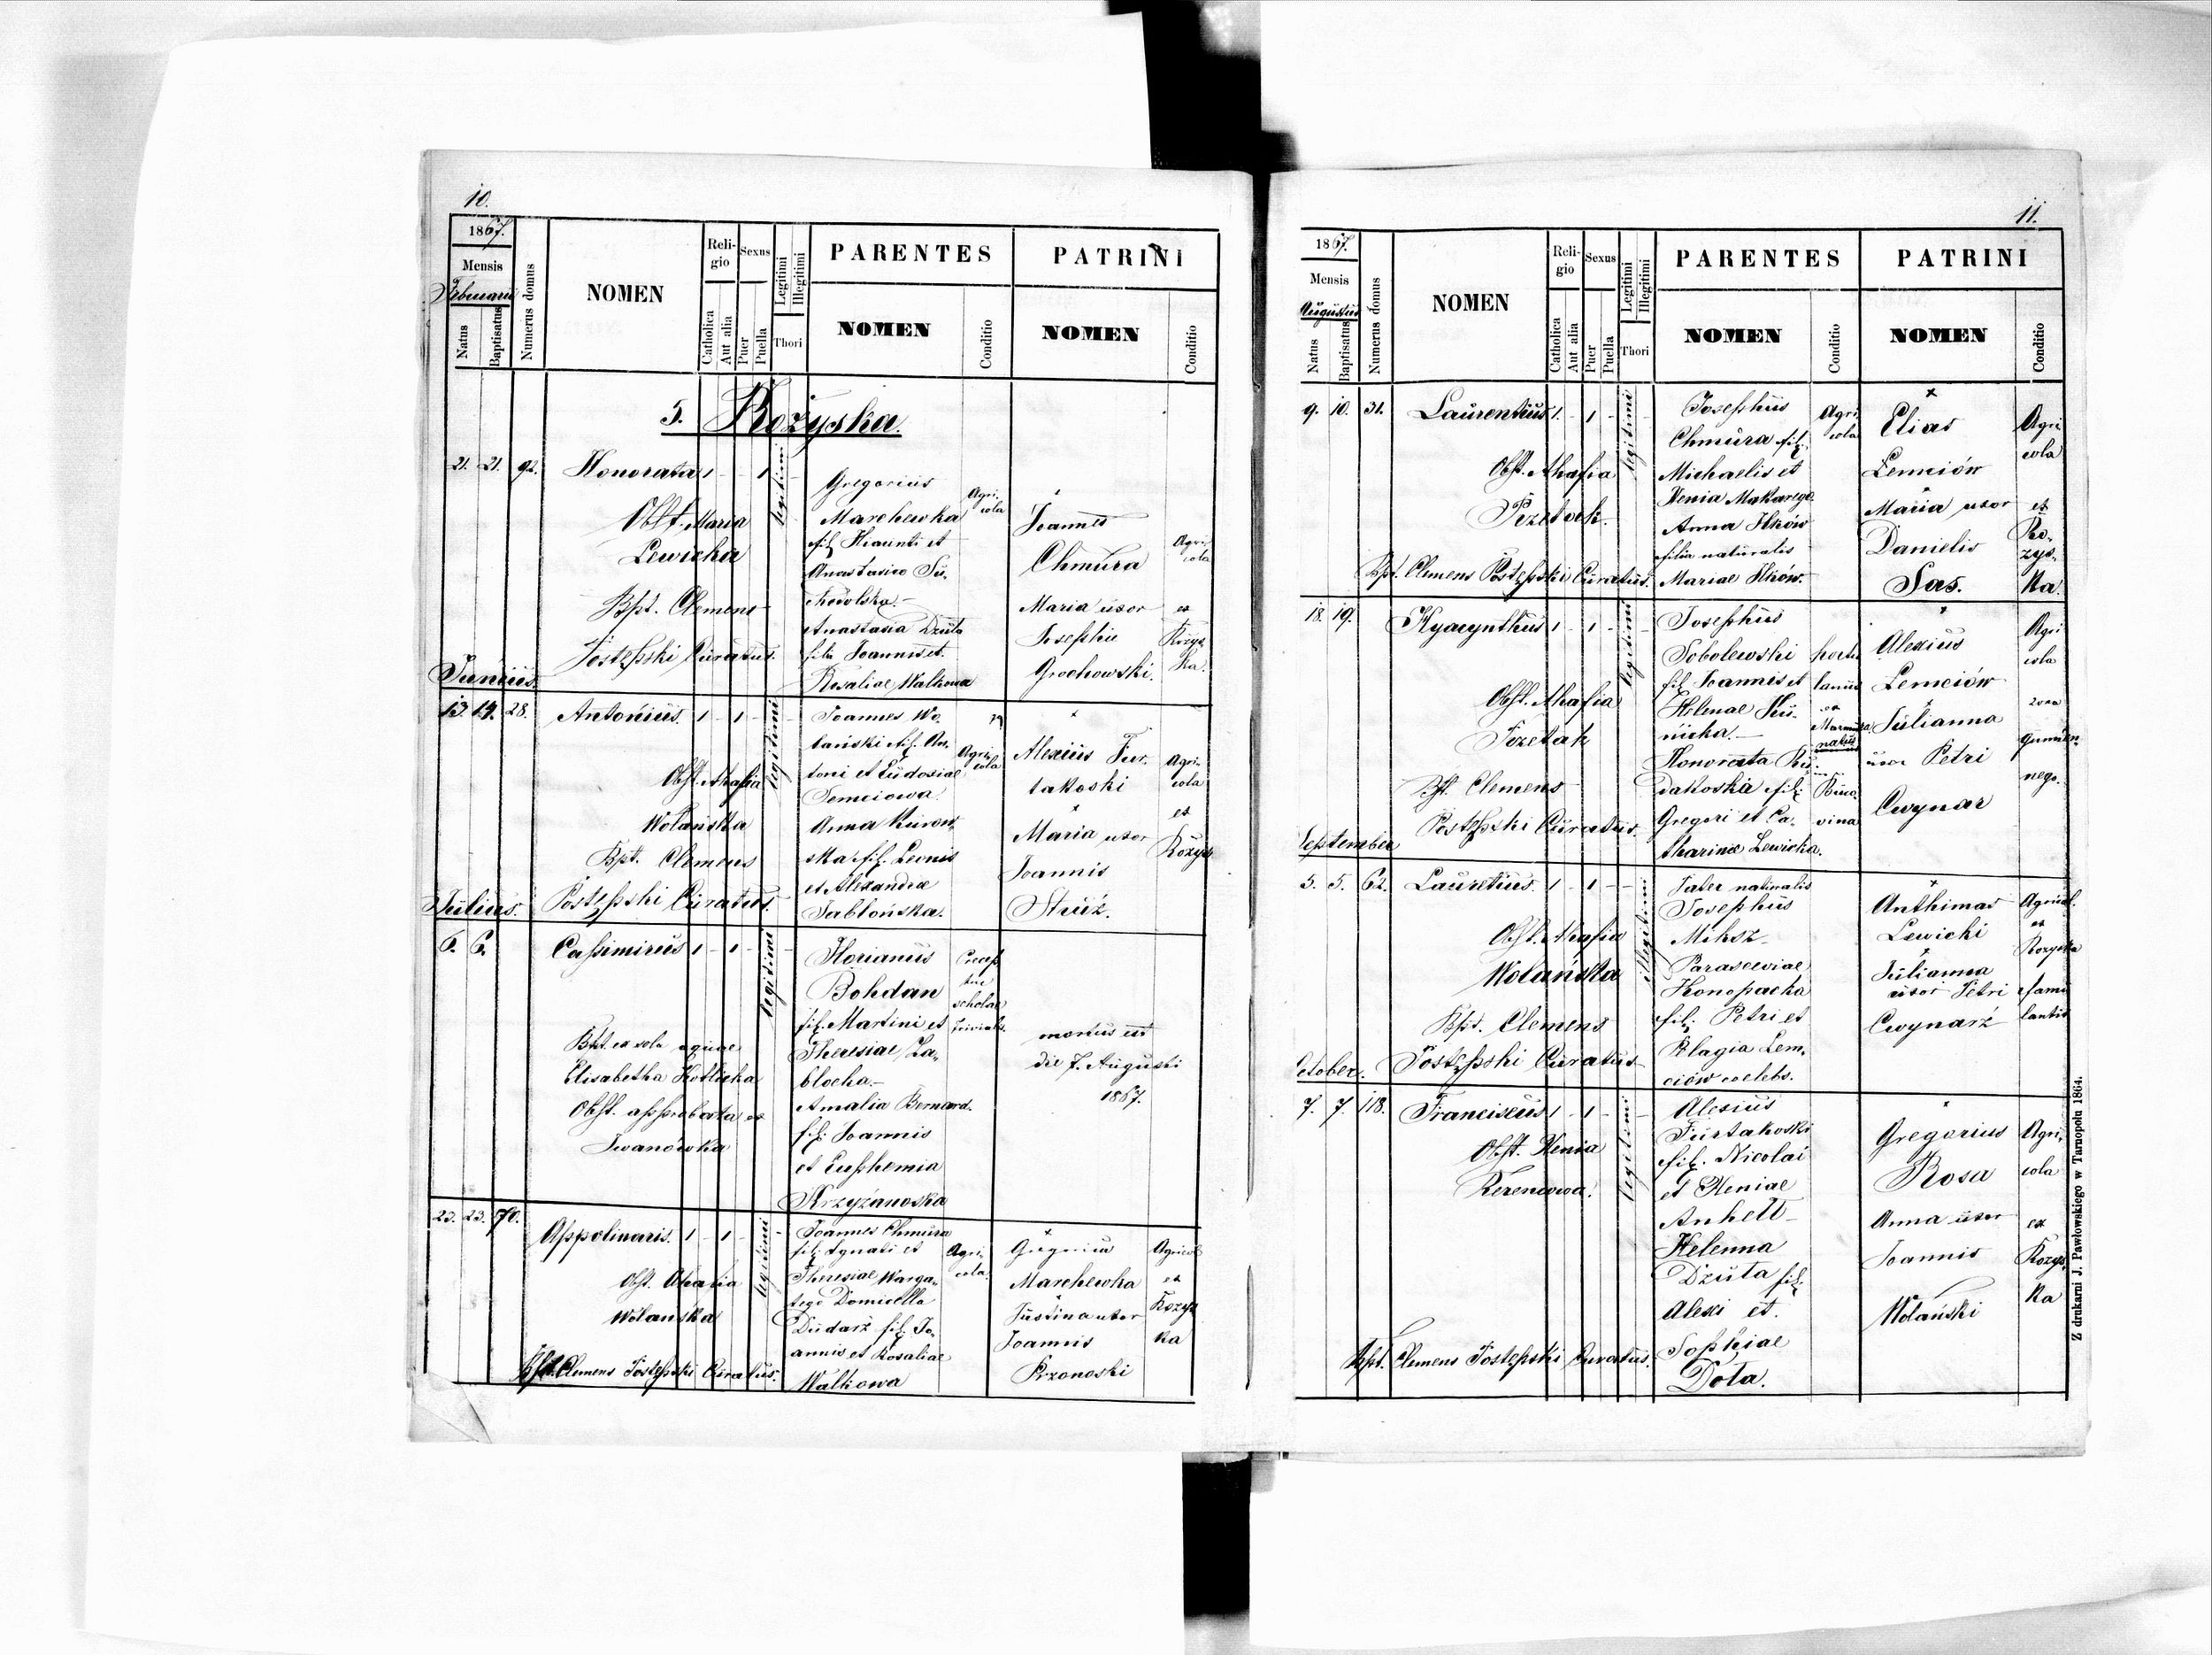 10.
1867.
Mensis
Februarii
Natus
Baptisatus
Numerus domus
NOMEN
Reli-
gio
Catholica
Aut alia
Sexus
Puer
Puella
Legitimi
Illegitimi
Thori
PARENTES
NOMEN
Conditio
PATRINI
NOMEN
Conditio
5. Rożyska.
21. 21. 92. Honorata 1 - - 1 legitimi
Obst. Maria
Lewicka
Bpt. Clemens
Postępski Curatus.
Gregorius
Marchewka
fil. et
Anastasiae
Anastasia Dziuta
filia Joannis et
Rosaliae Walkowa
Agri-
cola
Joannes
Chmura
Maria uxor
Josephi
Grochowski.
Agri-
cola
ex
Rożys
ka.
Junius.
13. 14. 28. Antonius. 1 - 1 - legitimi
Obst. Ahafia
Wolańska
Bpt. Clemens
Postępski Curatus.
Joannes Wo-
lański fil. An-
toni et Eudosiae
Semciowa.
Anna Kurow-
ska fil. Leonis
et Alexandra
Jabłońska.
Agri-
cola
Alexius Fur-
takoski
Maria uxor
Joannis
Struż.
Agri-
cola
et
Rożys
Julius.
6. 6. Cassimirus 1 - 1 - legitimi
Bpt. ex sola aquae
Elisabetha Kotlicka
Obst. approbata ex
Iwanówka
Florianus
Bohdan
fil. Martini et
Theresiae Za-
blocka.-
Amalia Bernard.
fil. Joannis
et Euphemia
Krzyżanoska
Precep
scholae
trivialis.
mortus est
die 7. Augusti
1867.
23. 23. 70. Appolinaris. 1 - 1 - legitimi
Obst. Ahafia
Wolanska
Bpt. Clemens Postępski Curatus.
Joannes Chmura
fil. Ignati et
Theresiae Warga-
tego Domicella
Dudarz fil. Jo-
annis et Rosaliae
Walkowa
Agri-
cola.
Gregorius
Marchewka
Justina uxor
Joannis
Przonoski
Agricol
ex
Rozys
ka
11.
1867.
Mensis
Augustus
Natus
Baptisatus
Numerus domus
NOMEN
Reli-
gio
Catholica
Aut alia
Sexus
Puer
Puella
Legitimi
Illegitimi
Thori
PARENTES
NOMEN
Conditio
PATRINI
NOMEN
Conditio
9. 10. 31. Laurentius 1. - 1 - legitimi
Obst. Ahafia
Bpt. Clemens Postępski Curatus.
Josephus
Chmura fil.
Michaelis et
Xenia Makarego
Anna Ilków
filia naturalis
Mariae Ilków.
Agri-
cola
Elias
Lemciów
Maria uxor
Danielis
Sas.
Agri
cola
ex
Ro-
zys-
ka.
18. 19. Hyacynthus 1 - 1 - legitimi
Obst. Ahafia
Bpt. Clemens
Postępski Curatus.
Josephus
Sobolewski
fil. Joannis et
Helenae Ku-
nicka.-
Honorata Ru-
dakoska fil.
Gregori et Ca-
tharinae Lewicka.
hortu
lanus
ex
Buco-
vina
Alexius
Lemciów
Julianna
uxor Petri
Cwynar
Agri
cola
zona
gumien-
nego.
September
5. 5. 62. Lauretius. 1 - 1 - - illegitimi
Obst. Ahafia
Wolańska
Bpt. Clemens
Postępski Curatus
Pater naturalis
Josephus
Miksz
Parascewiae
Konopacka
fil. Petri et
Pelagia Lem-
ciów coelebs.
Anthimas
Lewicki
Julianna
uxor Petri
Cwynarż
Agricol.
ex
Rozyska
fami
lantis
October.
7. 7. 118. Franciscus 1 - 1 - legitimi
Obst. Xenia
Bpt. Clemens Postępski Curatus.
Alexius
Furtakoski
fil. Nicolai
et Xeniae
Anhelt
Helenna
Dziuta fil.
Alexi et
Sophiae
Dota.
Gregorius
Rosa
Anna uxor
Joannis
Wolański
Agri-
cola
ex
Rozys
ka
Z drukarni J. Pawłowskiego w Tarnopolu 1864.